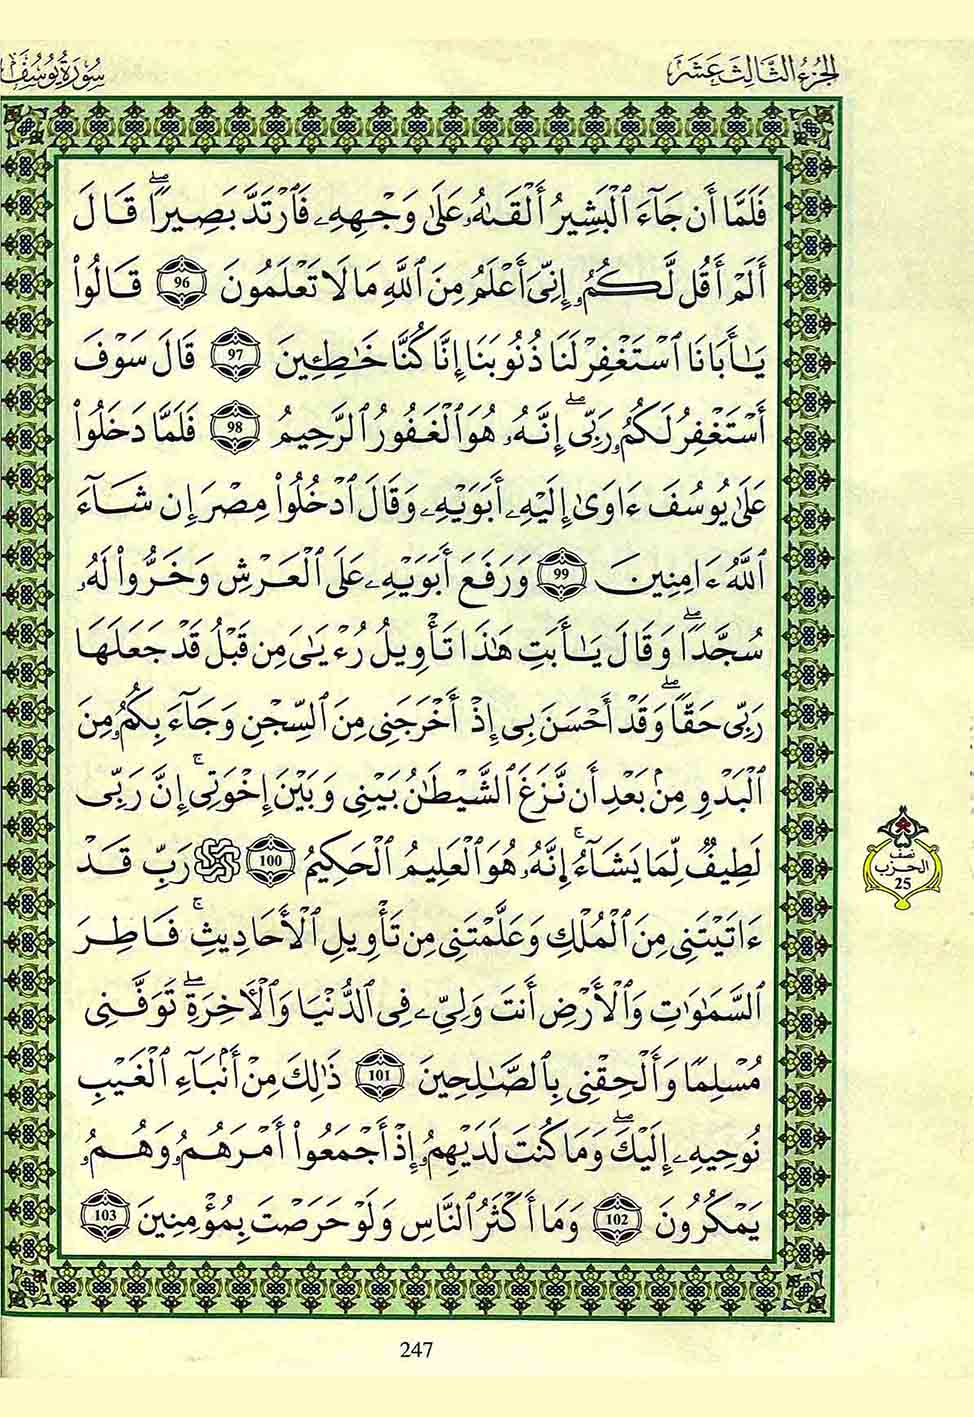 الجزء الثالث عشر
سورة يوسف
فَلَمَّا أَن جَآءَ ٱلْبَشِيرُ أَلْقَىٰهُ عَلَىٰ وَجْهِهِۦ فَٱرْتَدَّ بَصِيرًاۖ قَالَ
أَلَمْ أَقُل لَّكُمُۥ إِنِّىَ أَعْلَمُ مِنَ ٱللَّهِ مَا لَا تَعْلَمُونَ 96 قَالُوا۟
يَٰأَبَانَا ٱسْتَغْفِرْ لَنَا ذُنُوبَنَا إِنَّا كُنَّا خَٰطِـِٔينَ 97 قَالَ سَوْفَ
أَسْتَغْفِرُ لَكُمُۥ رَبِّىۖ إِنَّهُۥ هُوَ ٱلْغَفُورُ ٱلرَّحِيمُ 98 فَلَمَّا دَخَلُوا۟
عَلَىٰ يُوسُفَ ءَاوَىٰ إِلَيْهِۦ أَبَوَيْهِۦ وَقَالَ ٱدْخُلُوا۟ مِصْرَ إِن شَآءَ
ٱللَّهُ ءَامِنِينَ 99 وَرَفَعَ أَبَوَيْهِۦ عَلَى ٱلْعَرْشِ وَخَرُّوا۟ لَهُۥ
سُجَّدًاۖ وَقَالَ يَٰأَبَتِ هَٰذَا تَأْوِيلُ رُءْيَٰىَ مِن قَبْلُ قَدْ جَعَلَهَا
رَبِّى حَقًّاۖ وَقَدْ أَحْسَنَ بِى إِذْ أَخْرَجَنِى مِنَ ٱلسِّجْنِ وَجَآءَ بِكُمُۥ مِنَ
ٱلْبَدْوِ مِنۢ بَعْدِ أَن نَّزَغَ ٱلشَّيْطَٰنُ بَيْنِى وَبَيْنَ إِخْوَتِىۚ إِنَّ رَبِّى
لَطِيفٌ لِّمَا يَشَآءُۚ إِنَّهُۥ هُوَ ٱلْعَلِيمُ ٱلْحَكِيمُ 100 رَبِّ قَدْ
ءَاتَيْتَنِى مِنَ ٱلْمُلْكِ وَعَلَّمْتَنِى مِن تَأْوِيلِ ٱلْأَحَادِيثِۚ فَاطِرَ
ٱلسَّمَٰوَٰتِ وَٱلْأَرْضِ أَنتَ وَلِىِّۦ فِى ٱلدُّنْيَا وَٱلْءَاخِرَةِۖ تَوَفَّنِى
مُسْلِمًا وَأَلْحِقْنِى بِٱلصَّٰلِحِينَ 101 ذَٰلِكَ مِنْ أَنۢبَآءِ ٱلْغَيْبِ
نُوحِيهِۦ إِلَيْكَۖ وَمَا كُنتَ لَدَيْهِمُۥ إِذْ أَجْمَعُوا۟ أَمْرَهُمُۥ وَهُمُۥ
يَمْكُرُونَ 102 وَمَا أَكْثَرُ ٱلنَّاسِ وَلَوْ حَرَصْتَ بِمُؤْمِنِينَ 103
نصف
الحزب
25
247